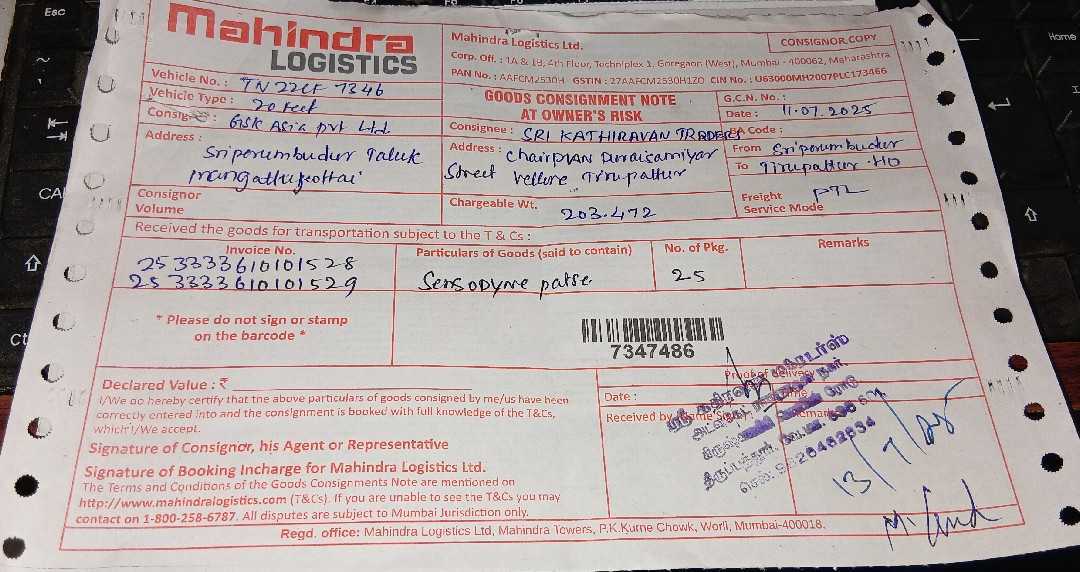 Esc
Home
mahindra
LOGISTICS
Mahindra Logistics Ltd.
CONSIGNOR COPY
Corp. Off. : 1A & 1B, 4th Floor, Techniplex 1, Goregaon (West), Mumbai - 400062, Maharashtra
PAN No. : AAFCM2530H GSTIN : 27AAFCM2530H1Z0 CIN No. : U63000MH2007PLC173466
Vehicle No. : TN 22CF 7346
Vehicle Type : 20 Feet
Consignor : GSK Asia Pvt Ltd.
Address : Sriperumbudur Taluk
GOODS CONSIGNMENT NOTE
AT OWNER'S RISK
G.C.N. No. :
Date : 11.07.2025
Consignee : SRI KATHIRAVAN TRADERS
Code :
Address :
Street Vellore Tirupattur
From Sriperumbudur
To Tirupattur - HO
Consignor
Volume
Chargeable Wt. 203.472
Freight
Service Mode PTL
Received the goods for transportation subject to the T & Cs :
Invoice No.
Particulars of Goods (said to contain)
No. of Pkg.
Remarks
25333361010 1528
25333361010 1529
Sensodyne patse
25
* Please do not sign or stamp
on the barcode *
7347486
Declared Value : ₹
Proof of delivery
I/We do hereby certify that the above particulars of goods consigned by me/us have been
correctly entered into and the consignment is booked with full knowledge of the T&Cs,
which I/We accept.
Date :
Received by
Signature of Consignor, his Agent or Representative
Signature of Booking Incharge for Mahindra Logistics Ltd.
The Terms and Conditions of the Goods Consignments Note are mentioned on
http://www.mahindralogistics.com (T&Cs). If you are unable to see the T&Cs you may
contact on 1-800-258-6787. All disputes are subject to Mumbai Jurisdiction only.
13/7/25
Regd. office: Mahindra Logistics Ltd, Mahindra Towers, P.K.Kurne Chowk, Worli, Mumbai-400018.